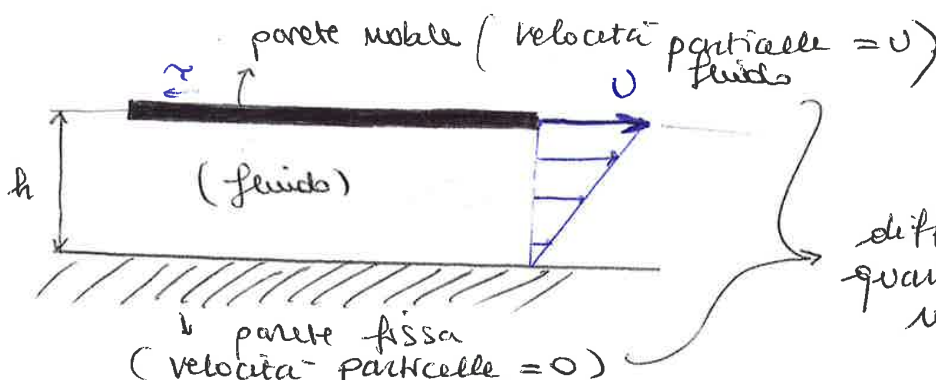 parete mobile ( velocità particelle = U )
fluido
τ
U
h
(fluido)
diff
quan
parete fissa
( velocità particelle = 0 )